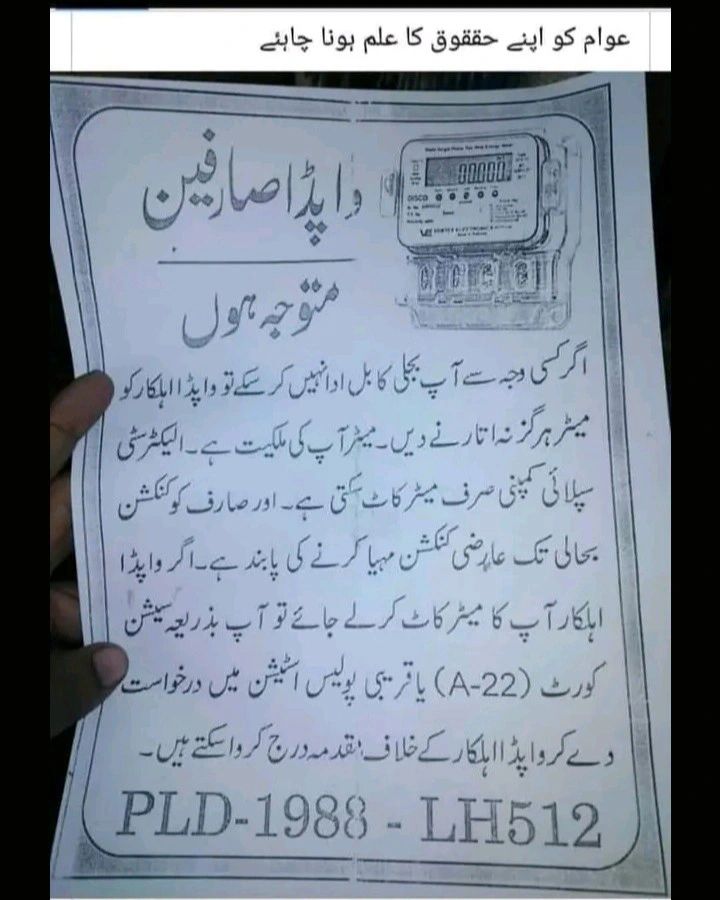 عوام کو اپنے حققوق کا علم ہونا چاہئے
واپڈا صارفین
متوجہ ہوں
00000
DISCO
اگر کسی وجہ سے آپ بجلی کا بل ادا نہیں کر سکے تو واپڈا اہلکار کو
میٹر ہرگز نہ اتارنے دیں۔ میٹر آپ کی ملکیت ہے۔ الیکٹرسٹی
سپلائی کمپنی صرف میٹر کاٹ سکتی ہے۔ اور صارف کو کنکشن
بحالی تک عارضی کنکشن مہیا کرنے کی پابند ہے۔ اگر واپڈا
اہلکار آپ کا میٹر کاٹ کر لے جائے تو آپ بذریعہ سیشن
کورٹ (22-A) یا قریبی پولیس اسٹیشن میں درخواست
دے کر واپڈا اہلکار کے خلاف مقدمہ درج کروا سکتے ہیں۔
PLD-1988 - LH512